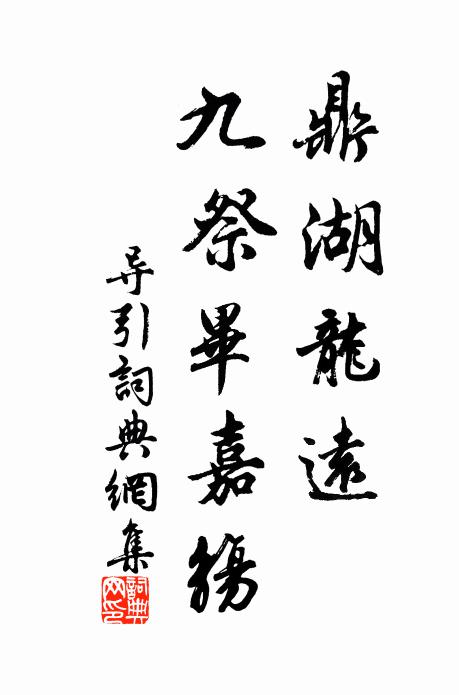 鼎湖龍遠
九祭畢嘉觴
导引詞典網集
詞典
網印